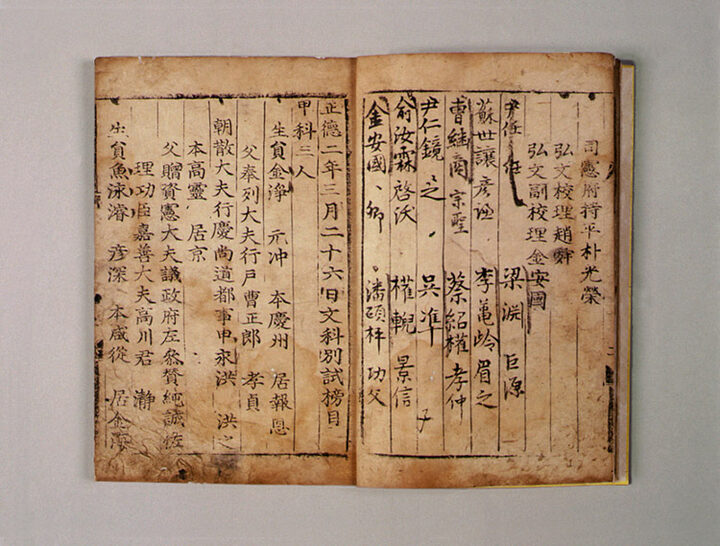 司憲府持平朴光榮
弘文校理趙舜
弘文副校理金安國
尹任任 梁淵 巨源
蘇世讓 彦謙 李龜岭 眉之
曹繼商 宗聖 蔡紹權 孝仲
尹仁鏡 之 吳準 子
俞汝霖 啓沃 權輗 景信
金安國 卿 潘碩枰 功父
正德二年三月二十六日文科別試榜目
甲科三人
生貟金淨 元冲 本慶州 居報恩
父奉列大夫行戶曹正郎 孝貞
朝散大夫行慶尚道都事申永洪 洪之
本高靈 居京
父贈資憲大夫議政府左叅賛純誠佐
理功臣嘉善大夫高川君 瀞
生貟魚泳濬 彦深 本咸從 居金海